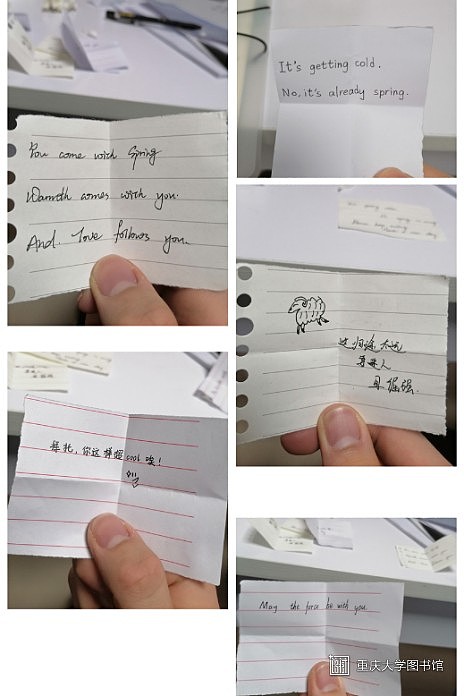 You come with Spring
Warmth comes with you.
And love follows you.
It's getting cold.
No, it's already spring.
这归途太远
寻迷人
且倔强.
拜托, 你这样超cool 唉!
May the force be with you.
重庆大学图书馆